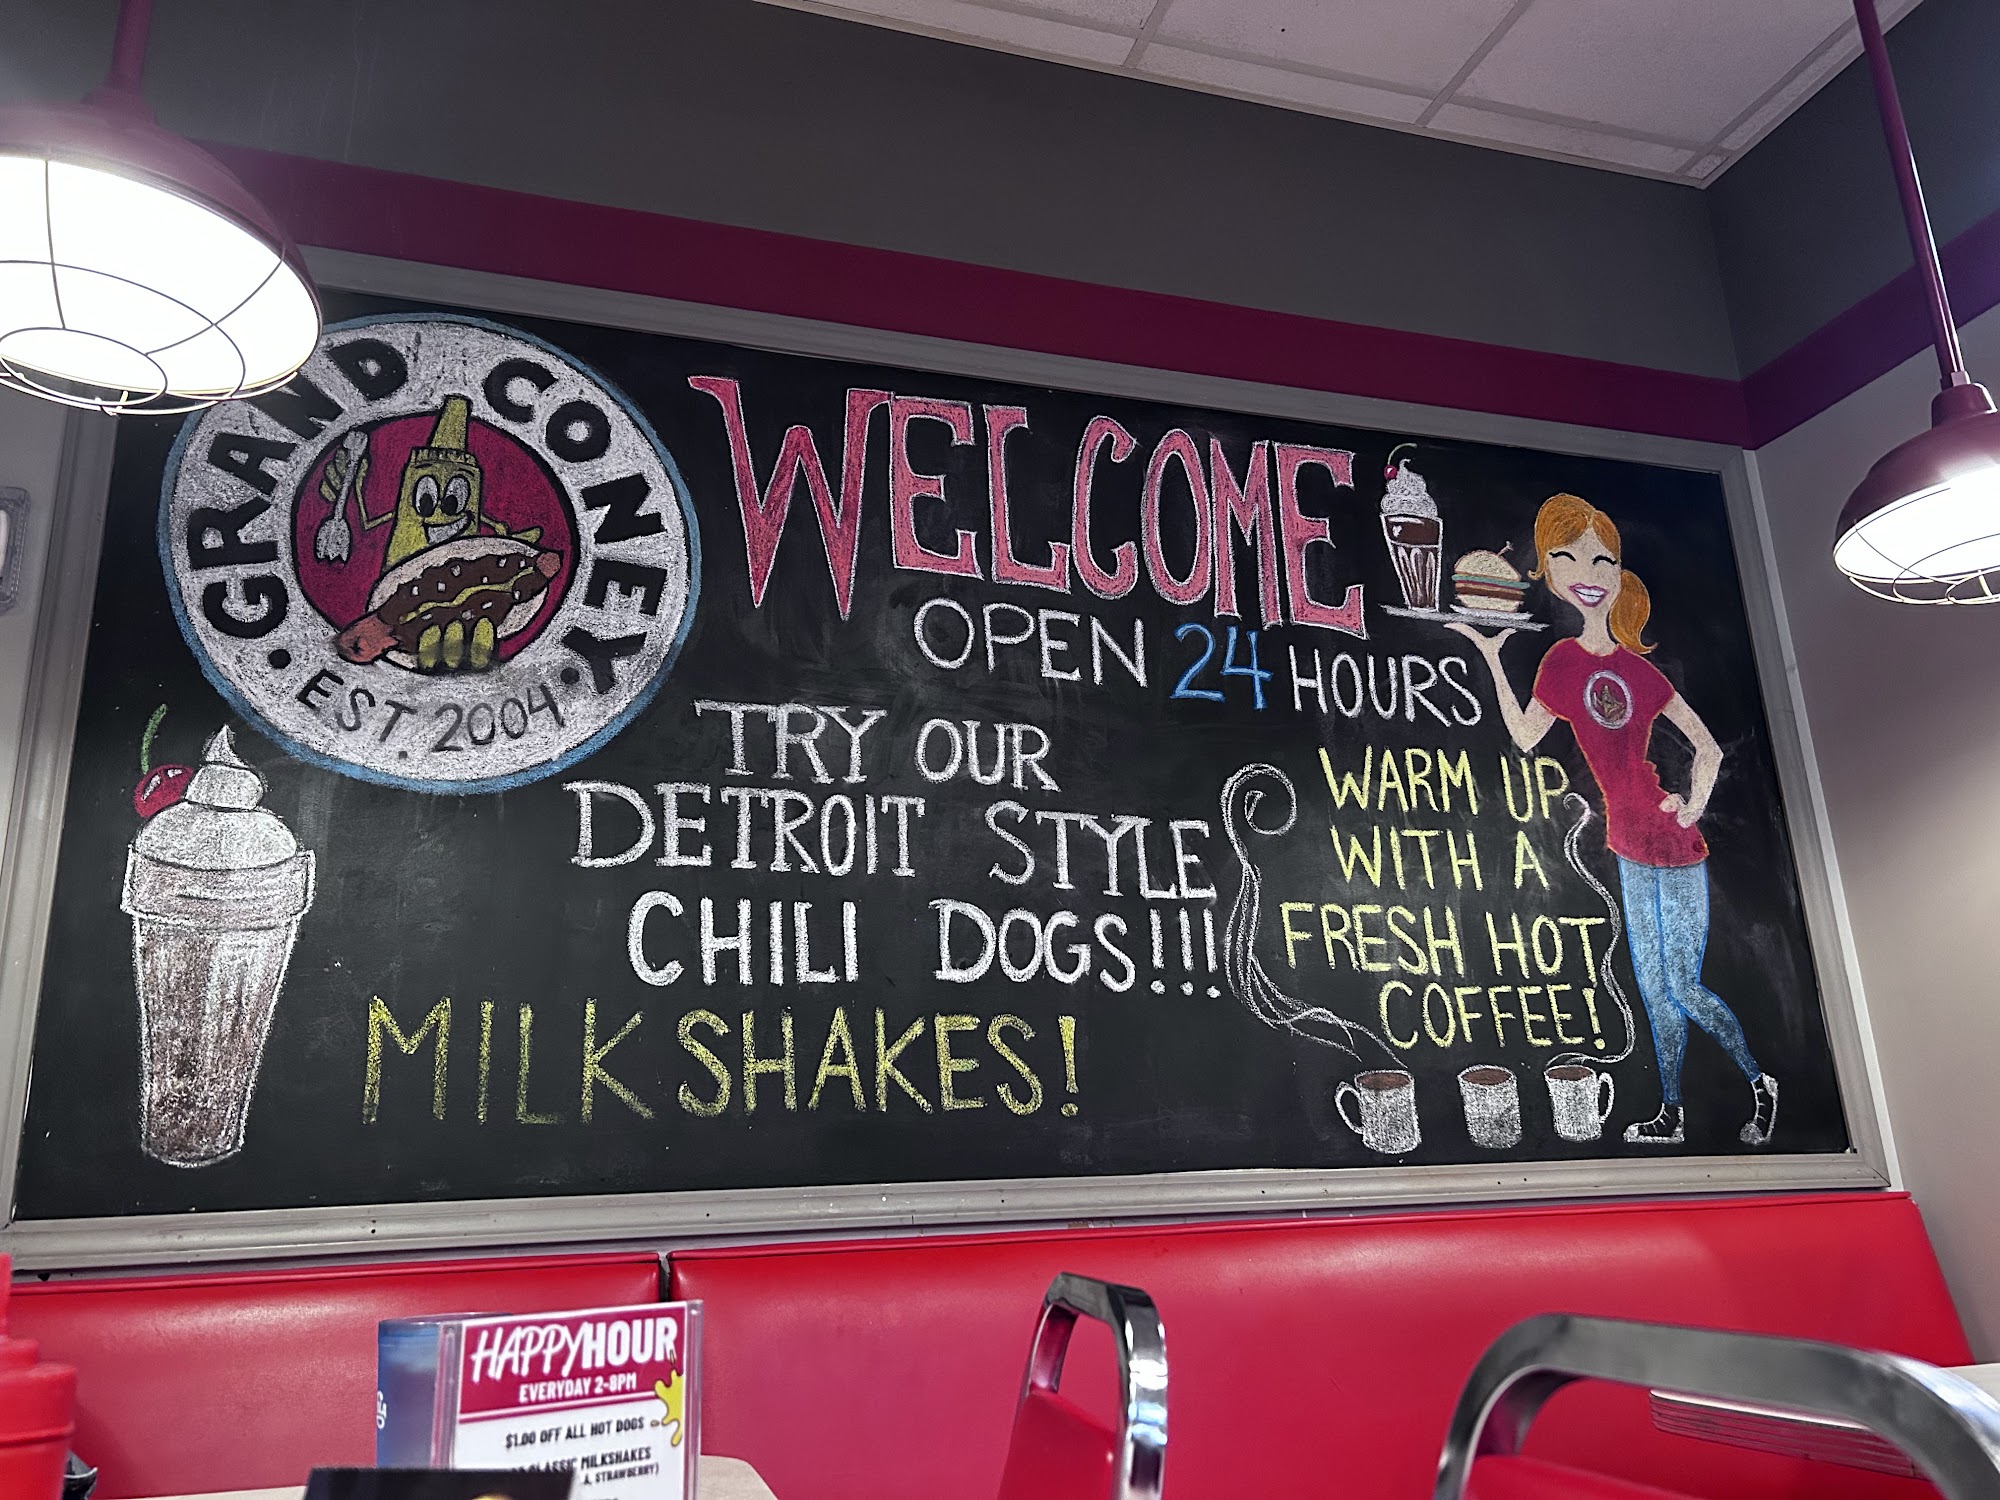 GRAND CONEY
MUSTARD
EST. 2004
WELCOME
OPEN 24 HOURS
TRY OUR
DETROIT STYLE
CHILI DOGS!!!
MILKSHAKES!
WARM UP
WITH A
FRESH HOT
COFFEE!
HAPPYHOUR
EVERYDAY 2-8PM
$1.00 OFF ALL HOT DOGS
CLASSIC MILKSHAKES
STRAWBERRY)